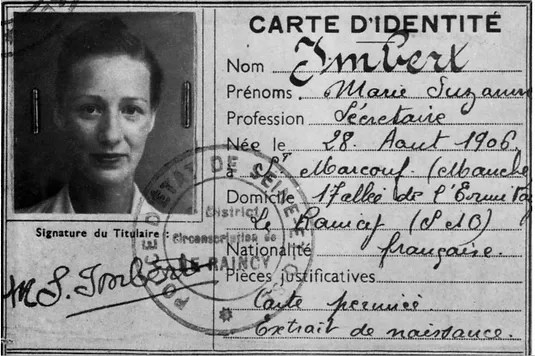 CARTE D'IDENTITÉ
Nom Imbert
Prénoms Marie Suzanne
Profession Sécretaire
Née le 28 Aout 1906
à St Marcouf. (Manche
Domicile 17 allée de l'Ermitag
Le Raincy (S & O)
Nationalité française.
Pièces justificatives
Carte permicé.
Extrait de naissance.
Signature du Titulaire :
M. S. Imbert
POLICE D'ÉTAT DE SEINE ET
District
Circonscription de
LE RAINCY